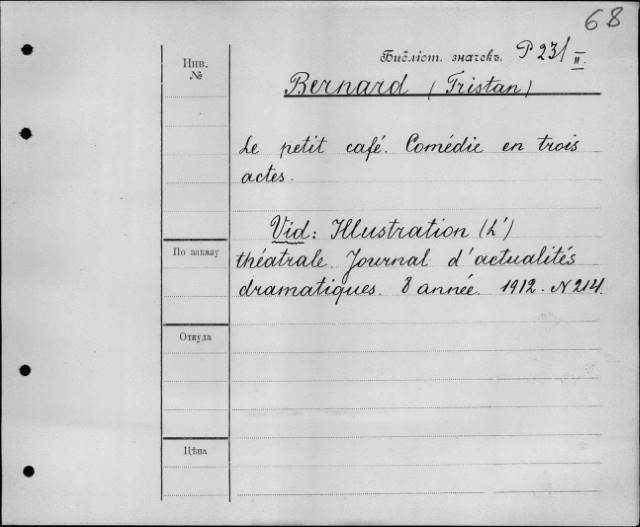 68
Библіот. значекъ. P 23/II.
Инв.
№
Bernard (Tristan)
Le petit café. Comédie en trois
actes.
Vid: Illustration (L')
По заказу
théatrale. Journal d'actualités
dramatiques. 8 année. 1912. N 214.
Откуда
Цѣна